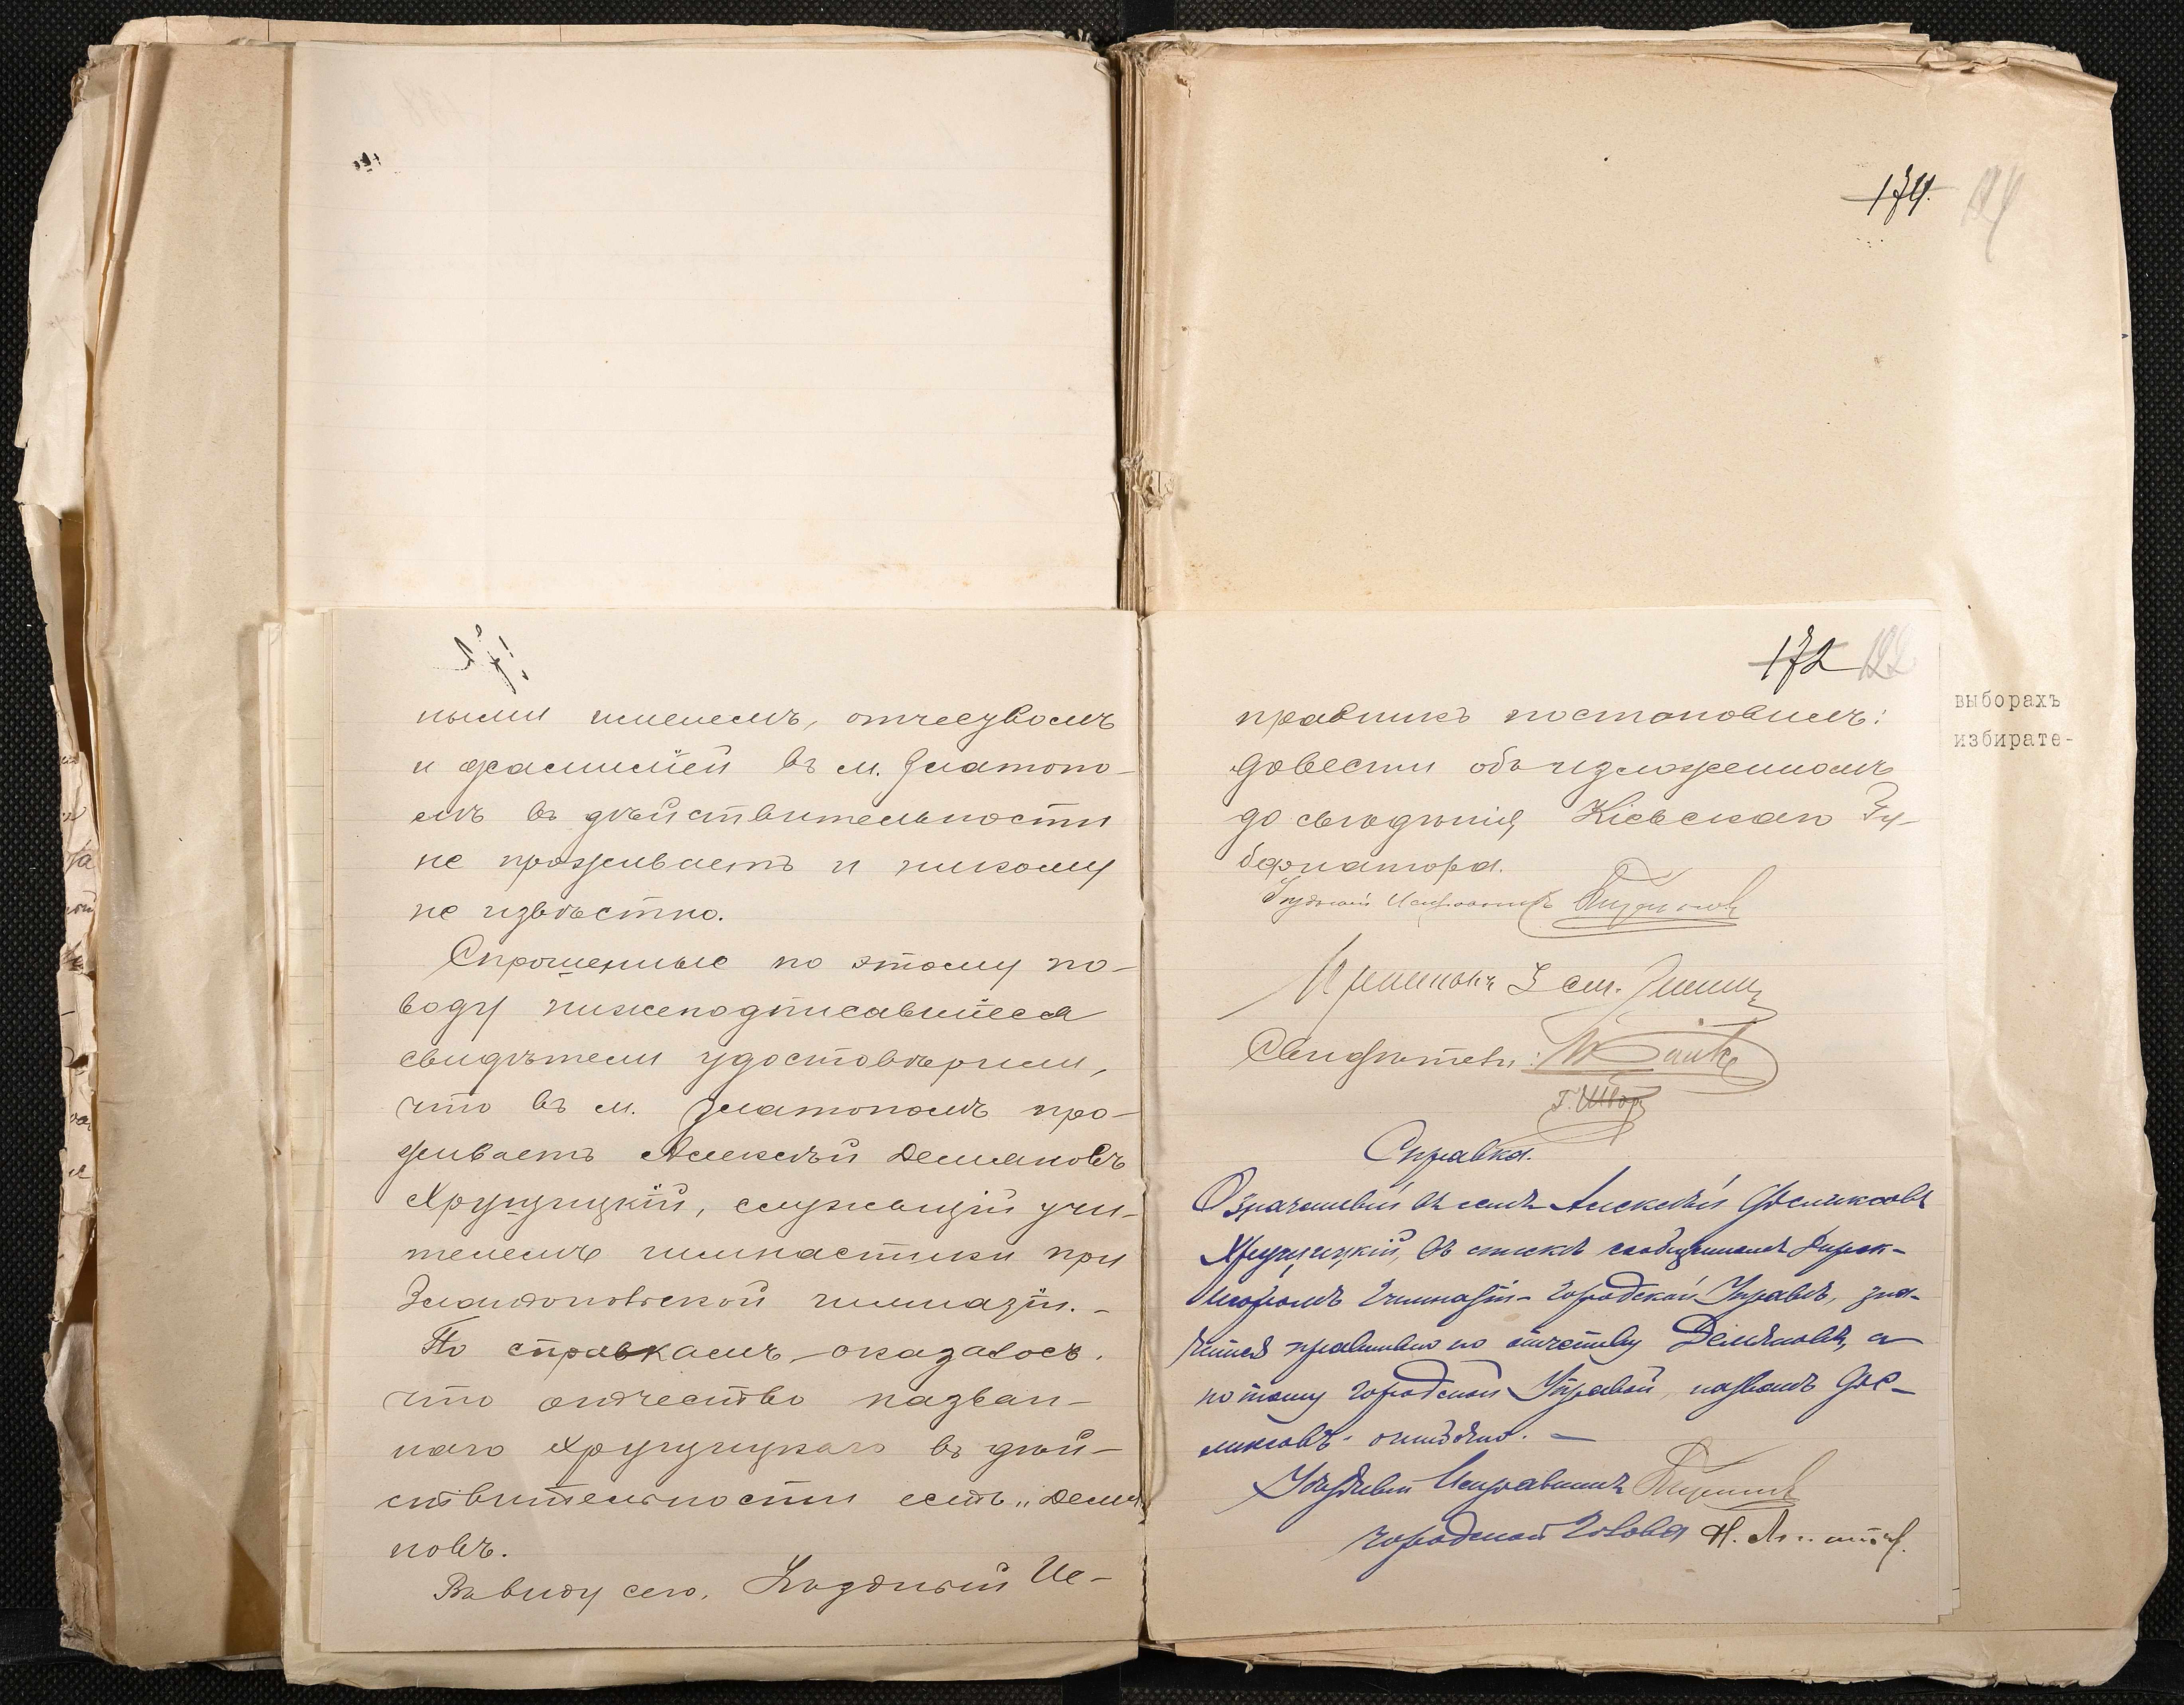 ными именемъ, отчествомъ
и фамиліей въ м. Златопо-
лѣ въ дѣйствительности
не проживаетъ и никому
не извѣстно.
Спрошенные по этому по-
воду нижеподписавшіеся
свидѣтели удостовѣрили,
что въ м. Златополѣ про-
живаетъ Алексѣй Демьяновъ
Хрущицкій, служащій учи-
телемъ гимнастики при
Златопольской гимназіи.-
По справкамъ оказалось,
что отчество назван-
наго Хрущицкаго въ дѣй-
ствительности есть „Демья
новъ.
Въ виду сего, Уѣздный Ис-
174.
172 122
правникъ постановилъ:
довести объ изложенномъ
до свѣдѣнія Кіевскаго Гу-
бернатора.
Уѣздный Исправникъ
Свидѣтели:
Г. Шварц
Справка.
Означенный въ семъ Алексѣй Феликсовъ
Хрущицкій, въ спискѣ сообщенномъ Дирек-
торомъ Гимназіи Городской Управѣ, зна-
чится правильно по отчеству Демьяновъ, а
потому городской Управой названъ Фе-
ликсовъ - ошибочно. -
Уѣздный Исправникъ
Городской Голова Н.
выборахъ
избирате-